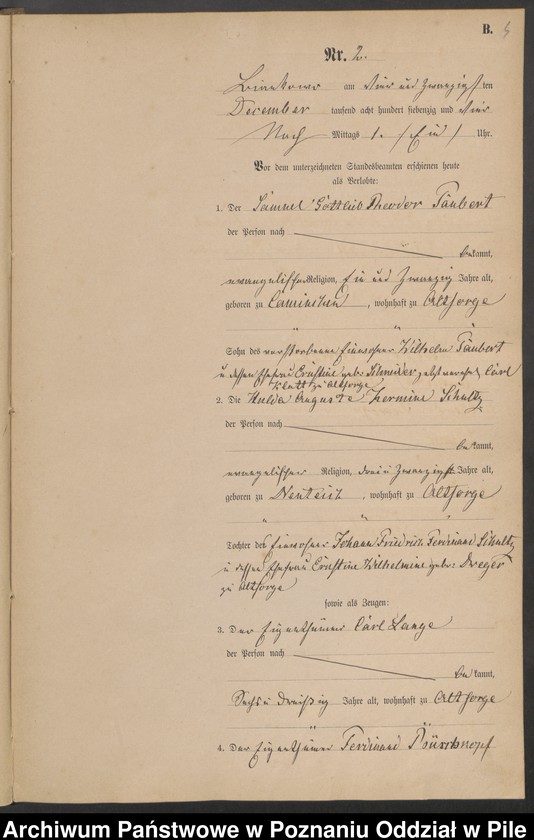 B.
Nr. 2.
am vier und zwanzigsten
December tausend acht hundert siebenzig und vier
Nach Mittags 1. (Ein) Uhr.
Vor dem unterzeichneten Standesbeamten erschienen heute
als Verlobte:
1. Der Samuel Gottlieb Theodor Täubert
der Person nach
bekannt,
evangelischer Religion, Ein und Zwanzig Jahre alt,
geboren zu , wohnhaft zu Altsorge
" "
Sohn des verstorbenen Einwohner Wilhelm Täubert
u dessen Ehefrau Ernstine geb: Schmider jetzt verehel. Carl
Klatt zu Altsorge
2. Die Hulda Auguste Hermine Schultz
der Person nach
bekannt,
evangelischer Religion, drei u Zwanzigst Jahre alt,
geboren zu Nenteich , wohnhaft zu Altsorge
" "
Tochter des Einwohner Johann Friedrich Ferdinand Schultz
u dessen Ehefrau Ernstine Wilhelmine geb: Dreger
zu Altsorge
sowie als Zeugen:
3. Der Eigenthümer Carl Lange
der Person nach
bekannt,
Sechs u Dreißig Jahre alt, wohnhaft zu Altsorge
" "
4. Der Eigenthümer Ferdinand
Archiwum Państwowe w Poznaniu Oddział w Pile